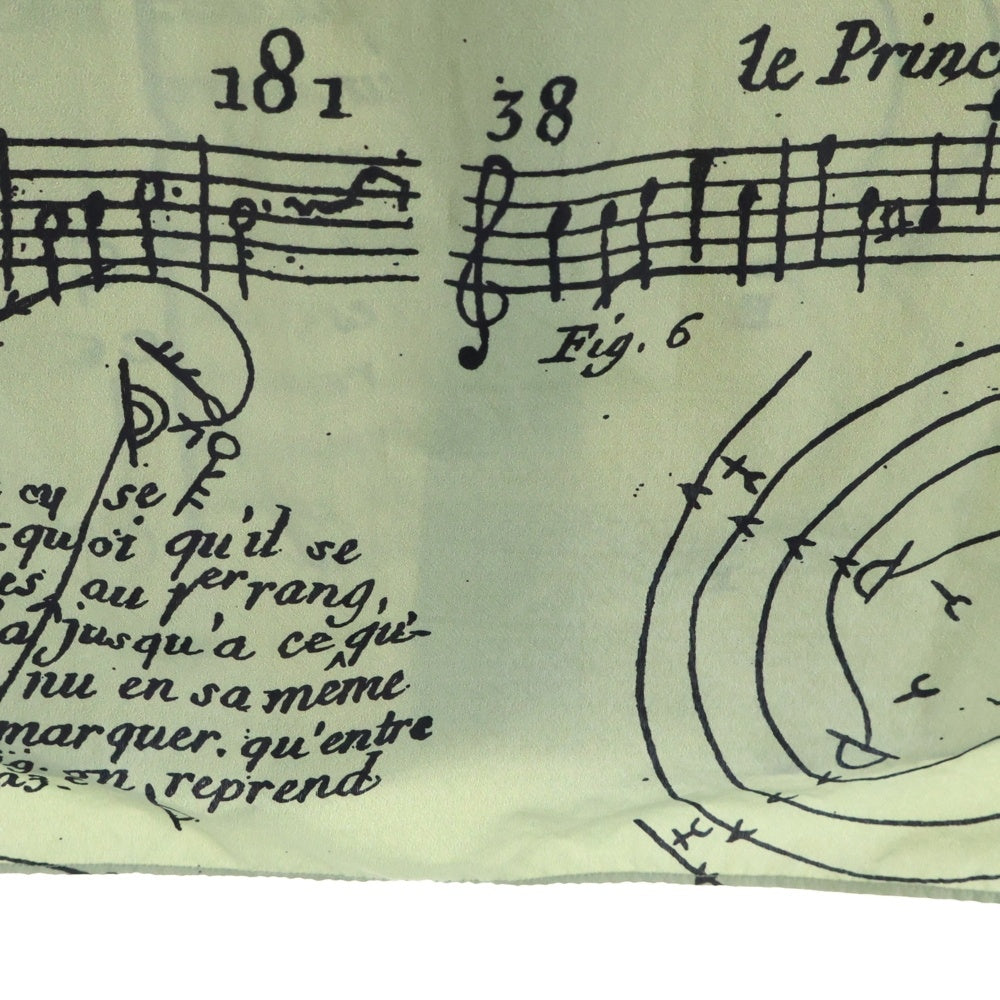 181
38
le Princ
Fig. 6
cy se
quoi qu'il se
es au per rang,
a jusqu'a ce qu'-
nu en sa même
marquer. qu'entre
en reprend